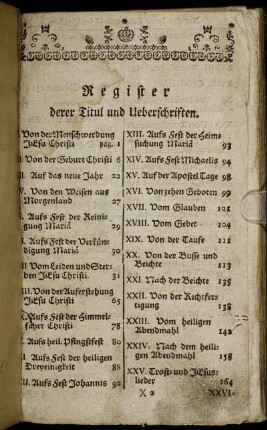 Register
derer Titul und Ueberschriften.
Von der Menschwerdung
JEsu Christi pag. 1
II. Von der Geburt Christi 6
III. Auf das neue Jahr 22
V. Von den Weisen aus
Morgenland 27
Aufs Fest der Reinigung
Mariä 29
I. Aufs Fest der Verkündigung
Mariä 30
II Vom Leiden und Sterben
JEsu Christi. 31
III. Von der Auferstehung
JEsu Christi 65
X. Aufs Fest der Himmelfahrt
Christi 78
Aufs heil. Pfingstfest 80
I Aufs Fest der heiligen
Dreyeinigkeit 88
XII. Aufs Fest Johannis 92
XIII. Aufs Fest der Heimsuchung
Mariä 93
XIV. Aufs Fest Michaelis 94
XV. Auf der Apostel Tage 98
XVI. Von zehen Geboten 99
XVII. Vom Glauben 101
XVIII. Vom Gebet 104
XIX. Von der Taufe 111
XX. Von der Busse und
Beichte 113
XXI. Nach der Beichte 135
XXII. Von der Rechtfertigung
138
XXIII. Vom heiligen
Abendmahl 142
XXIV. Nach dem heiligen
Abendmahl 158
XXV. Trost- und JEsuslieder
164
X 2 XXVI.